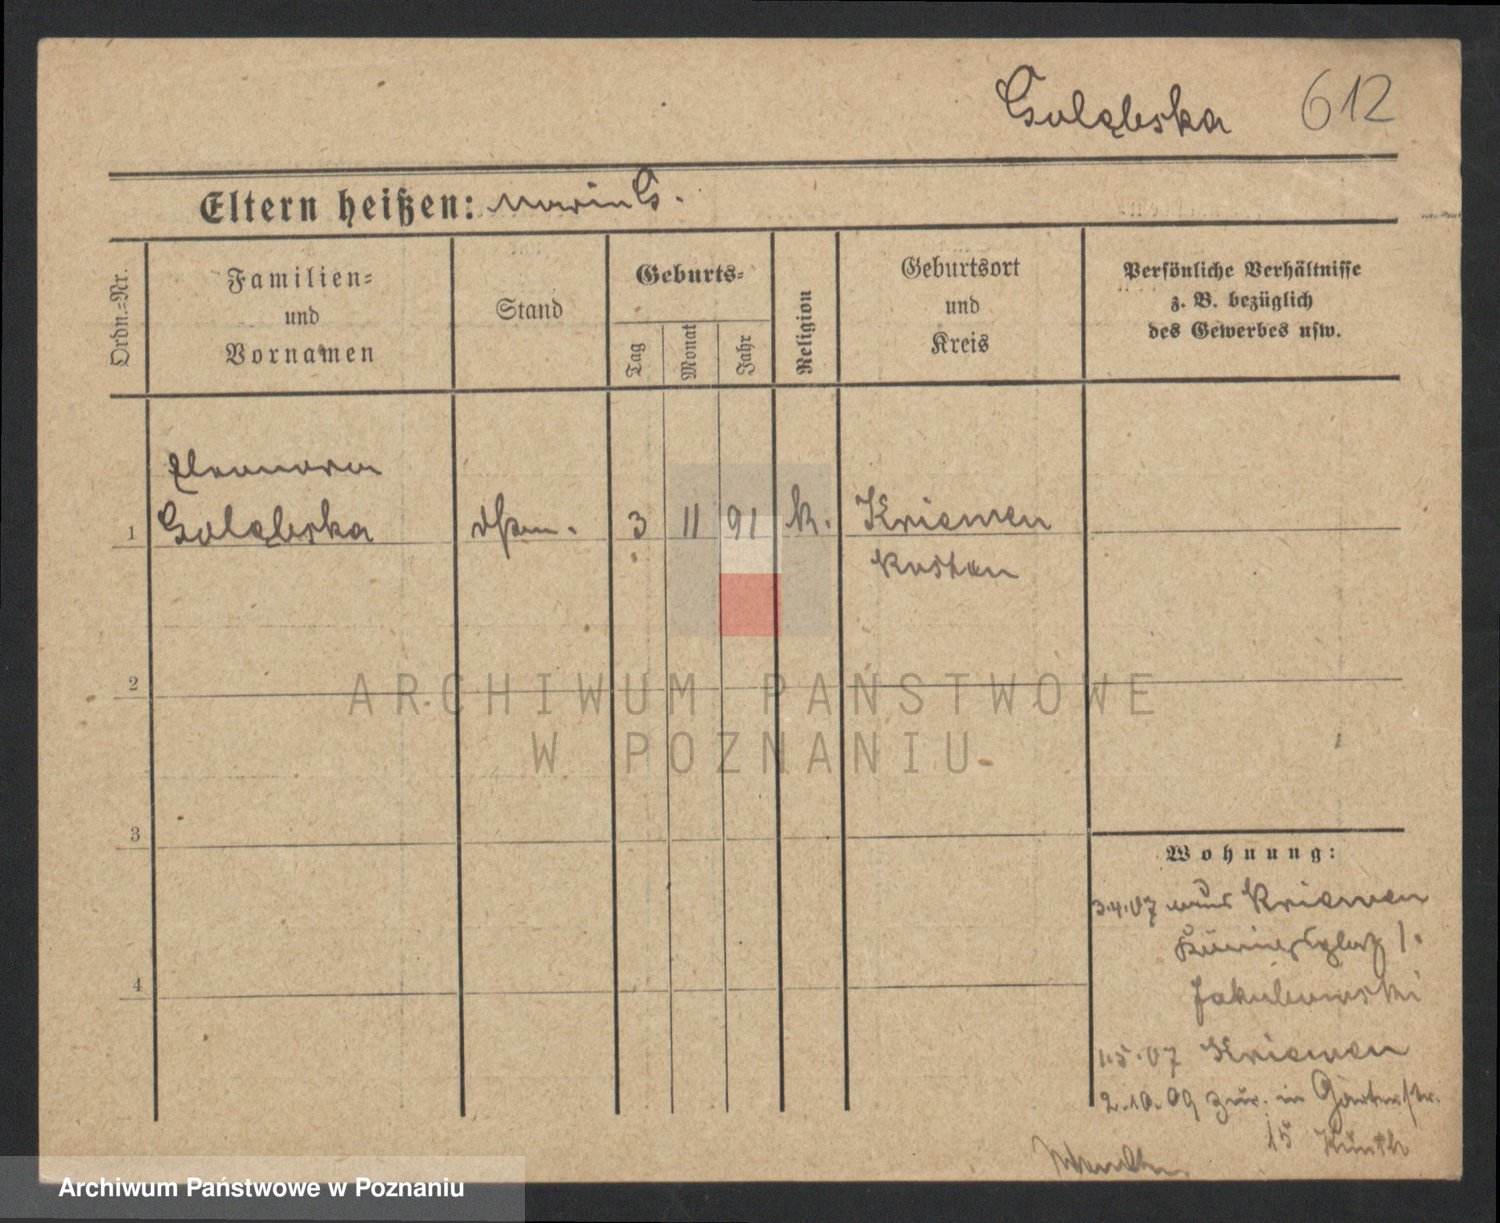 Goląbska 612
Eltern heißen: Maria G.
Ordn.-Nr.
Familien-
und
Vornamen
Stand
Geburts-
Tag
Monat
Jahr
Religion
Geburtsort
und
Kreis
Persönliche Verhältnisse
z. B. bezüglich
des Gewerbes usw.
Eleonora
1 Goląbska 3 11 91 k. Kriewen
Kosten
2
ARCHIWUM PAŃSTWOWE
W POZNANIU
3
Wohnung:
3.4.07 aus Kriewen
Königsplatz 1.
4
Jakubowski
1.5.07 Kriewen
2.10.09 zur. in Gartenstr.
15
Archiwum Państwowe w Poznaniu